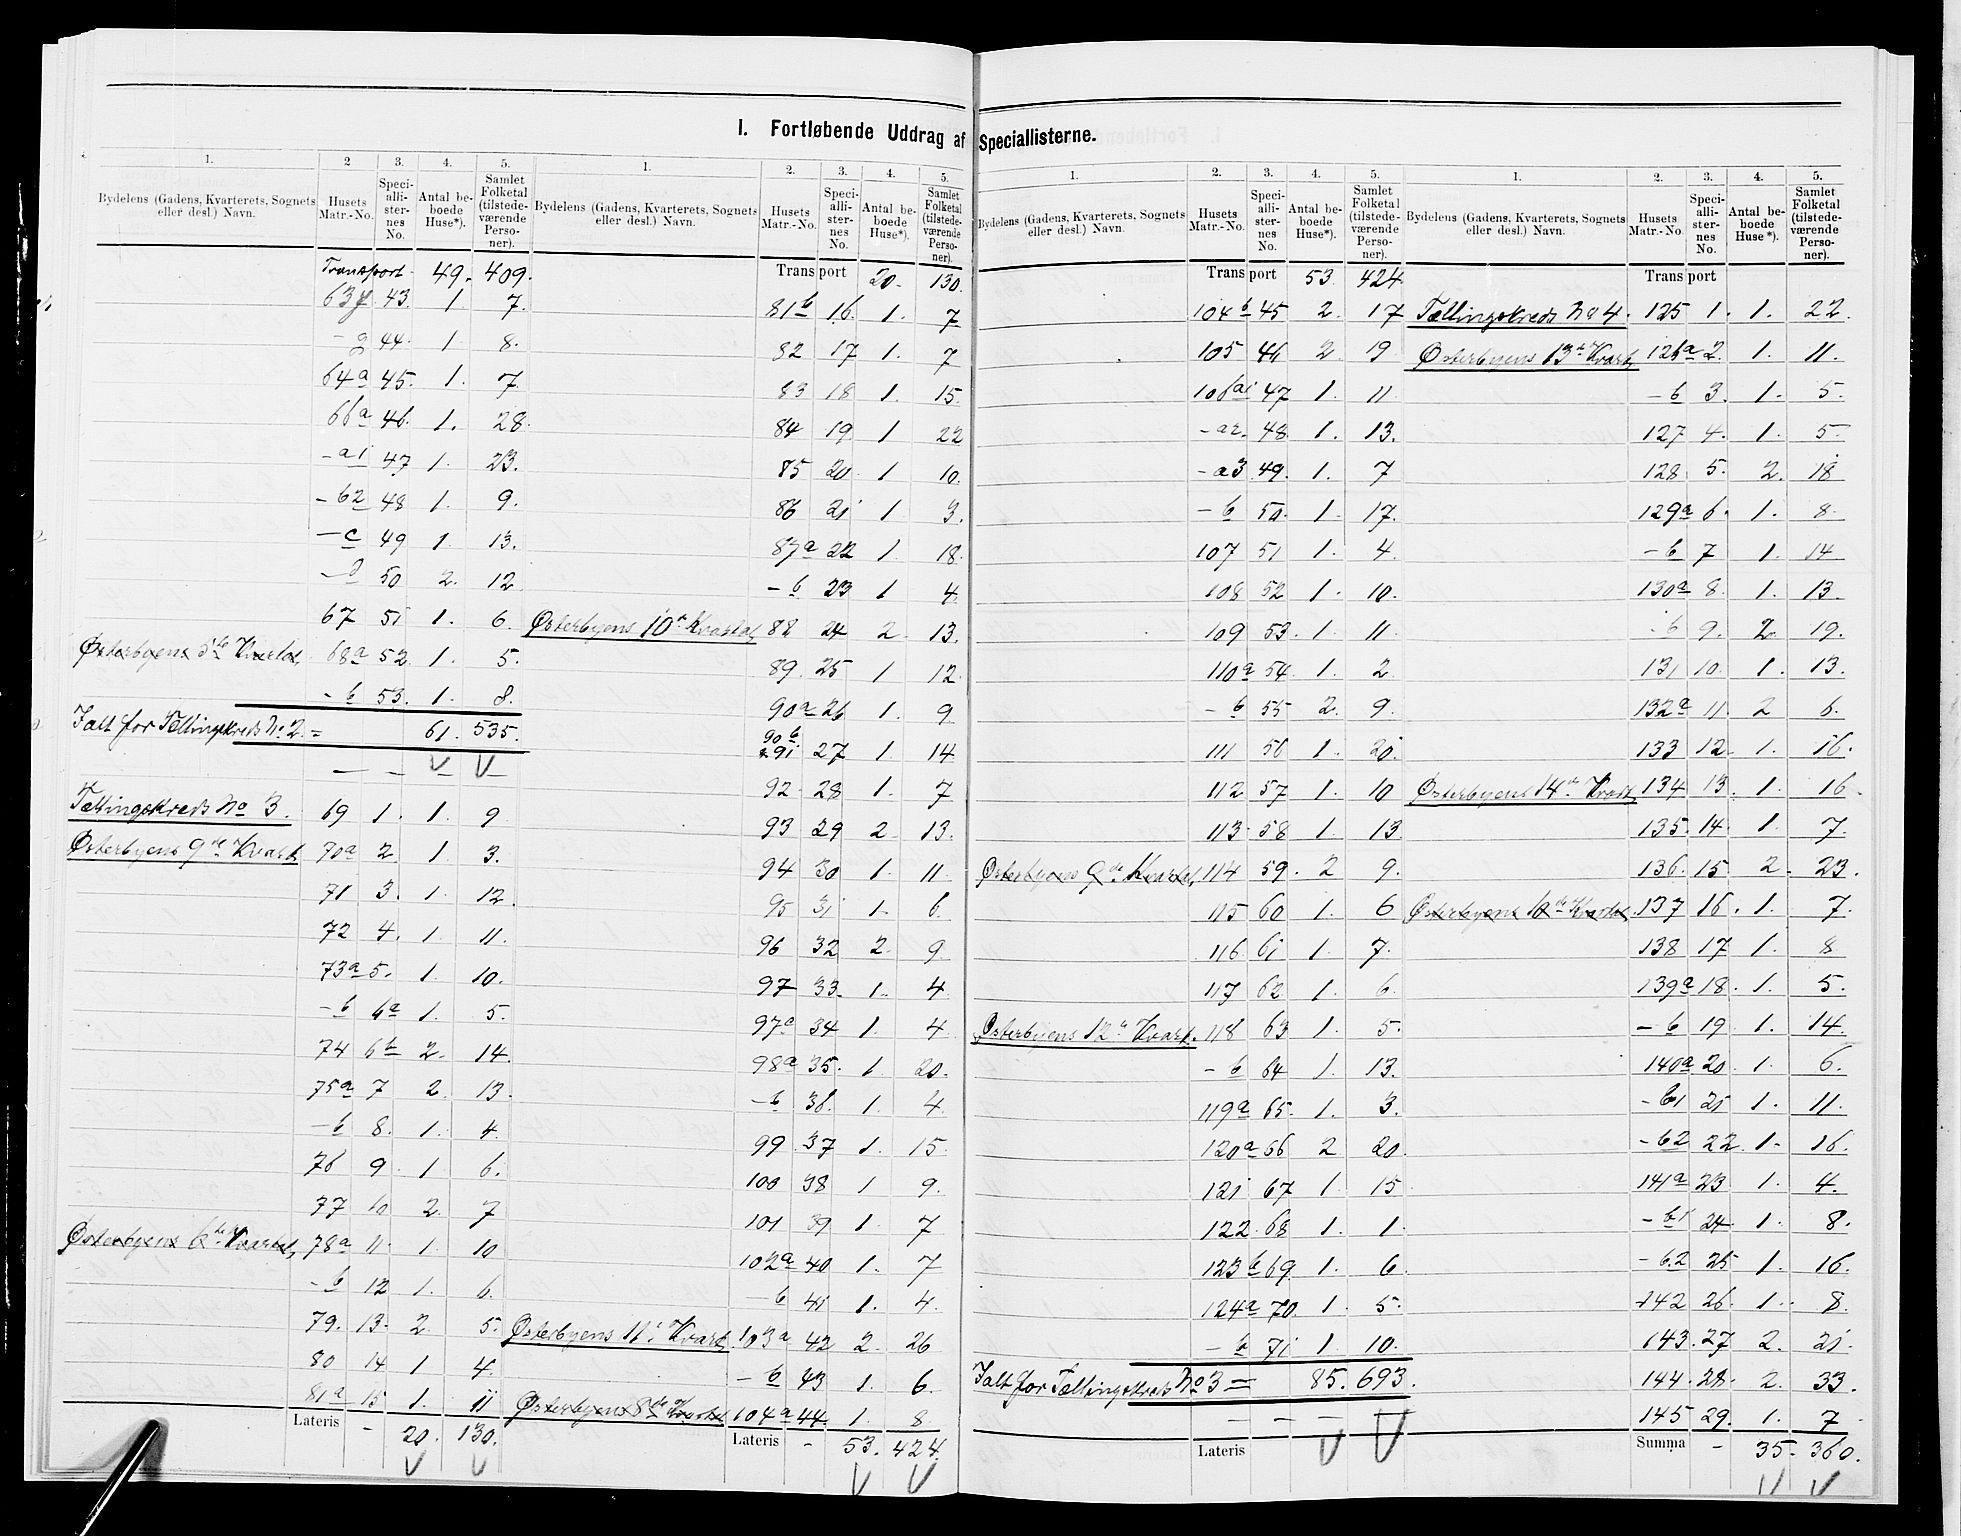 I. Fortløbende Uddrag af Speciallisterne.
1. 2 3. 4. 5.
Bydelens (Gadens, Kvarterets, Sognets eller desl.) Navn. Husets Matr.-No. Speciallisternes No. Antal beboede Huse*). Samlet Folketal (tilstedeværende Personer).
Transport 49. 409.
63f 43. 1. 7.
- g 44. 1 8.
64a 45. 1. 7.
66a 46. 1. 28.
- a1 47 1. 23.
- b2 48 1. 9.
- c 49 1. 13.
- d 50 2. 12.
67 51 1. 6.
Østerbyens 5te Kvartal, 68a 52. 1. 5.
- b 53. 1. 8.
Ialt for Tællingskreds No. 2. = 61. 535.
Tællingskreds No 3. 69 1. 1. 9.
Østerbyens 9de Kvart. 70a 2. 1 3.
71 3. 1. 12.
72 4. 1 11.
73a 5. 1. 10.
- b 6a 1. 5.
74 6b 2. 14.
75a 7 2. 13.
- b 8. 1. 4.
76 9. 1 6.
77 10 2. 7
Østerbyens 6te Kvartal, 78a 11. 1. 10
- b 12 1. 6.
79. 13. 2. 5.
80 14 1 4.
81a 15 1. 11
Lateris - 20. 130.
1. 2. 3. 4. 5.
Bydelens (Gadens, Kvarterets, Sognets eller desl.) Navn. Husets Matr.-No. Speciallisternes No. Antal beboede Huse*). Samlet Folketal (tilstedeværende Personer).
Transport 20. 130.
81b 16. 1. 7
82 17 1. 7
83 18 1. 15.
84 19 1 22
85 20. 1 10.
86 21 1 3.
87a 22 1. 18.
- b 23 1 4.
Østerbyens 10de Kvartal, 88 24 2. 13.
89. 25 1 12.
90a 26 1. 9
90b & 91 27 1. 14
92. 28 1. 7
93 29 2. 13.
94 30 1. 11.
95 31 1. 6.
96 32 2. 9
97 33. 1. 4
97a 34 1. 4.
98a 35. 1. 20.
- b 36. 1. 4
99 37 1. 15.
100 38 1 9.
101 39 1. 7
102a 40 1. 7
- b 41 1. 4.
Østerbyens 11te Kvart. 103a 42 2. 26
- b 43 1. 6.
Østerbyens 8de Kvartal 104a 44. 1. 8.
Lateris - 53. 424.
1. 2. 3. 4. 5.
Bydelens (Gadens, Kvarterets, Sognets eller desl.) Navn. Husets Matr.-No. Speciallisternes No. Antal beboede Huse*). Samlet Folketal (tilstedeværende Personer).
Transport 53. 424
104b 45 2. 17
105 46 2 19
106a1 47 1. 11
- a2. 48. 1. 13.
- a3 49. 1. 7
- b 50. 1. 17.
107 51 1. 4.
108 52 1. 10.
109 53. 1. 11.
110a 54. 1. 2
- b 55 2. 9.
111 56 1. 20.
112 57 1. 10
113. 58 1. 13
Østerbyens 9de Kvartal, 114 59. 2 9.
115 60 1. 6
116. 61 1 7.
117 62 1. 6.
Østerbyens 12te Kvart. 118 63 1. 5.
- b 64 1. 13.
119a 65. 1. 3.
120a 66 2 20.
121 67 1. 15
122. 68 1. 1.
123b 69. 1. 6.
124a 70. 1. 5.
- b 71 1 10.
Ialt for Tællingskreds No 3 = 85. 693.
Lateris
1. 2. 3. 4. 5.
Bydelens (Gadens, Kvarterets, Sognets eller desl.) Navn. Husets Matr.-No. Speciallisternes No. Antal beboede Huse*). Samlet Folketal (tilstedeværende Personer).
Transport
Tællingskreds No 4. 125 1. 1. 22.
Østerbyens 13de Kvart. 126a 2. 1. 11.
- b 3. 1. 5.
127 4. 1. 5.
128 5. 2. 18
129a 6. 1. 8.
- b 7 1. 14
130a 8. 1. 13.
- b 9. 2. 19.
131 10. 1. 13.
132a 11. 2 6.
133 12. 1. 16.
Østerbyens 14de Kvart. 134 13. 1. 16.
135. 14. 1. 7.
136. 15 2. 23.
Østerbyens 10de Kvartal. 137 16. 1. 7.
138 17 1. 8
139a 18. 1. 5.
- b 19 1. 14.
140a 20. 1. 6.
- b1 21 1. 11.
- b2 22 1. 16.
141a 23 1. 4.
- b1 24. 1. 8.
- b2 25 1. 16.
142 26. 1. 8.
143. 27 2. 21.
144. 28. 2. 33.
145 29. 1. 7
Summa - 35. 360.